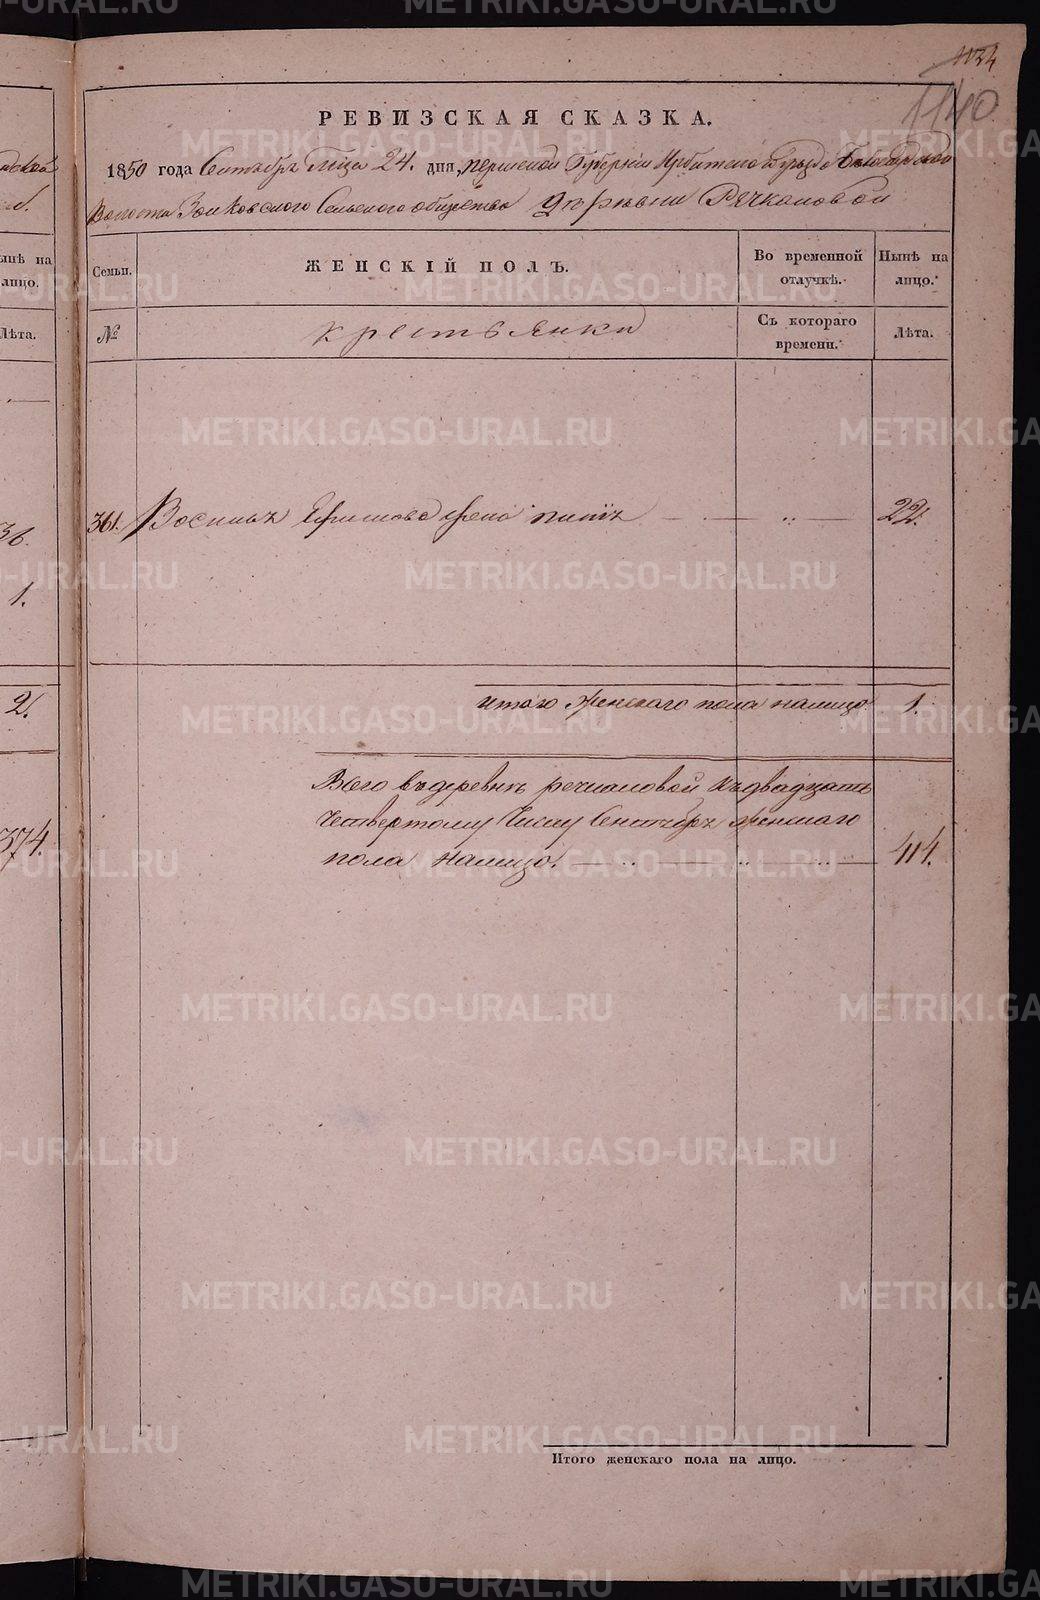 1134
1140
РЕВИЗСКАЯ СКАЗКА.
1850 года Сентября м҃ца 24. дня, Пермской Губерніи Ирбитскаго уѣзда
Волости Зайковского Сельского общества Деревни Речкаловой
Семьи. ЖЕНСКІЙ ПОЛЪ. Во временной отлучкѣ. Нынѣ на лицо.
№ крестьянки Съ котораго времени. Лѣта.
361. Ефимова жена 22.
итого женскаго пола налицо 1.
Всего въ деревнѣ речкаловой къ двадцать
четвертому числу Сентября женскаго
пола налицо. 414.
Итого женскаго пола на лицо.
ынѣ на
лицо.
Лѣта.
36.
1.
2.
374.
METRIKI.GASO-URAL.RU